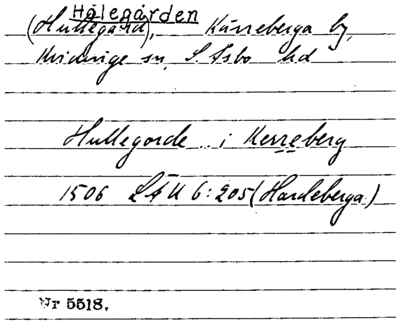 Hålegården
(Hullegård), Kärreberga by,
Kvidinge sn, S. Åsbo hd
Hullegorde i Kerreberg
1506 LÄU 6:205 (Hardeberga)
Nr 5518.